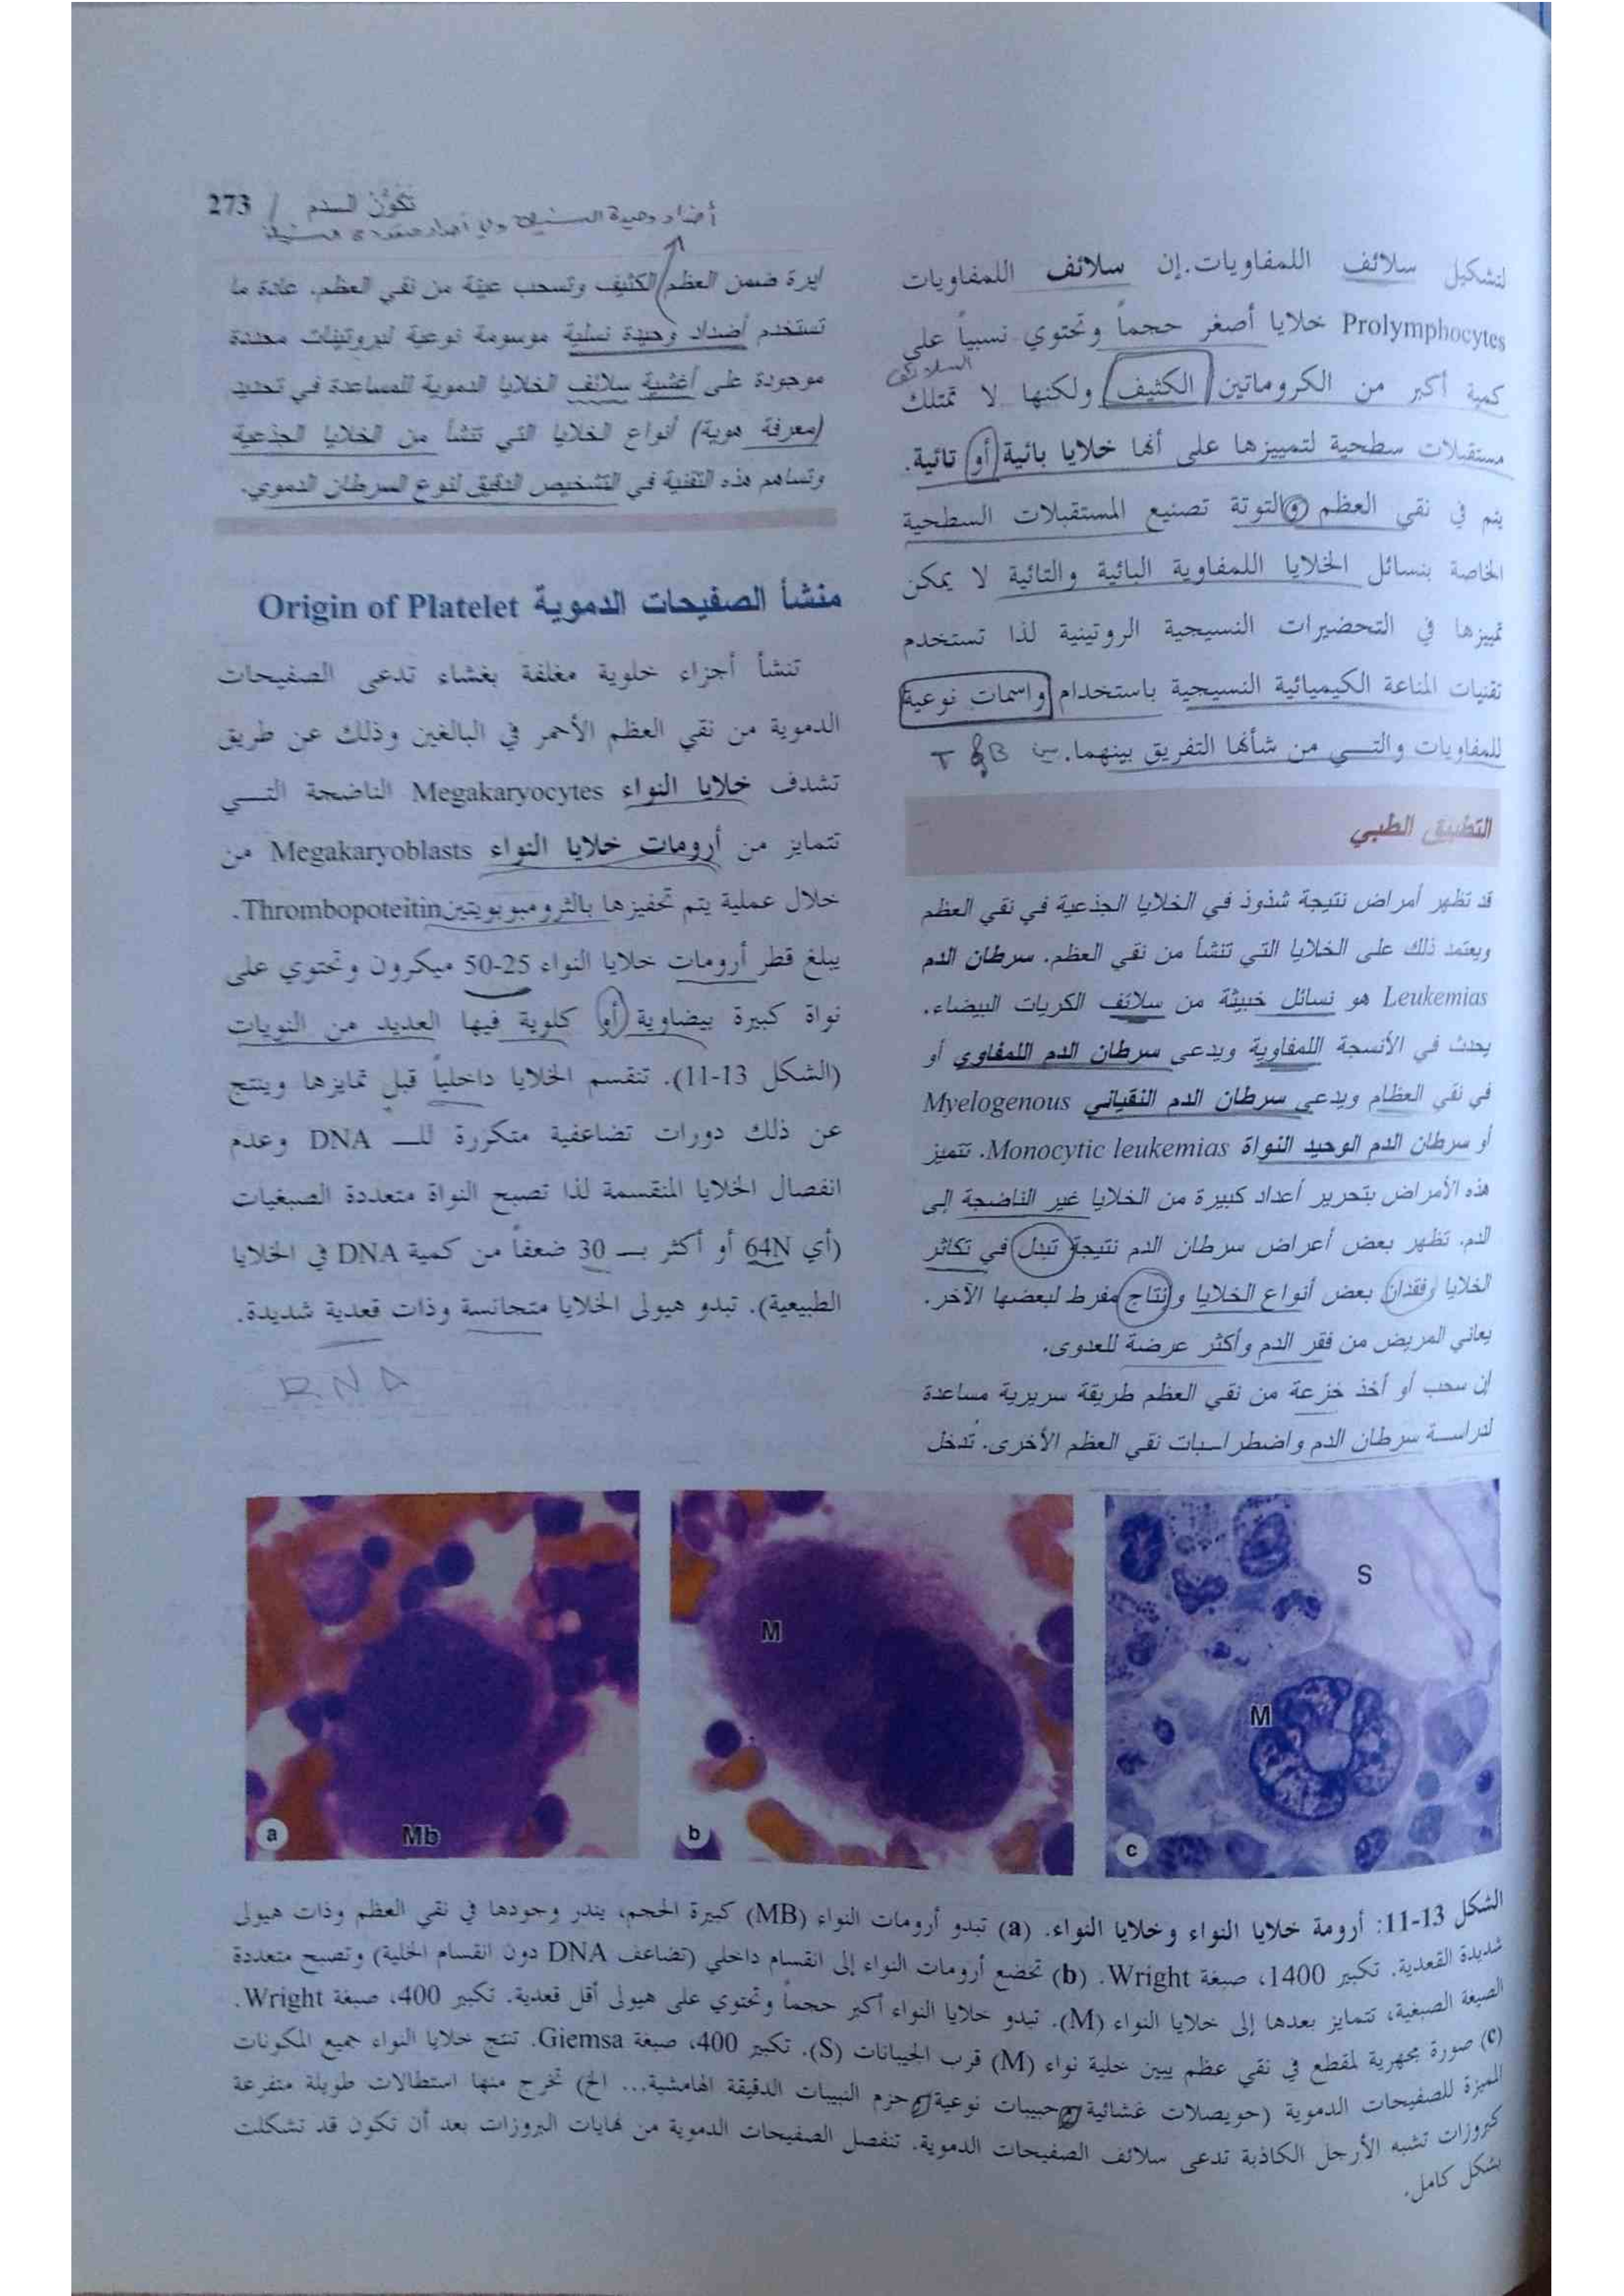 273 / تكوّن الـدم
لتشكيل سلائف اللمفاويات. إن سلائف اللمفاويات
Prolymphocytes خلايا أصغر حجماً وتحتوي نسبياً على
السلائف
كمية أكبر من الكروماتين الكثيف ولكنها لا تمتلك
مستقبلات سطحية لتمييزها على أنها خلايا بائية أو تائية.
يتم في نقي العظم والتوتة تصنيع المستقبلات السطحية
الخاصة بنسائل الخلايا اللمفاوية البائية والتائية لا يمكن
تمييزها في التحضيرات النسيجية الروتينية لذا تستخدم
تقنيات المناعة الكيميائية النسيجية باستخدام واسمات نوعية
للمفاويات والتـــي من شأنها التفريق بينهما. بين B & T
التطبيق الطبي
قد تظهر أمراض نتيجة شذوذ في الخلايا الجذعية في نقي العظم
ويعتمد ذلك على الخلايا التي تنشأ من نقي العظم. سرطان الدم
Leukemias هو نسائل خبيثة من سلائف الكريات البيضاء.
يحدث في الأنسجة اللمفاوية ويدعى سرطان الدم اللمفاوي أو
في نقي العظام ويدعى سرطان الدم النقياني Myelogenous
أو سرطان الدم الوحيد النواة Monocytic leukemias. تتميز
هذه الأمراض بتحرير أعداد كبيرة من الخلايا غير الناضجة إلى
الدم. تظهر بعض أعراض سرطان الدم نتيجة تبدل في تكاثر
الخلايا وفقدان بعض أنواع الخلايا وإنتاج مفرط لبعضها الآخر.
يعاني المريض من فقر الدم وأكثر عرضة للعدوى.
إن سحب أو أخذ خزعة من نقي العظم طريقة سريرية مساعدة
لدراســة سرطان الدم واضطرابات نقي العظم الأخرى. تُدخل
أضداد وحيدة النسيلة
ابرة ضمن العظم الكثيف وتسحب عينة من نقي العظم. عادة ما
تستخدم أضداد وحيدة نسلية موسومة نوعية لبروتينات محددة
موجودة على أغشية سلائف الخلايا الدموية للمساعدة في تحديد
(معرفة هوية) أنواع الخلايا التي تنشأ من الخلايا الجذعية
وتساهم هذه التقنية في التشخيص الدقيق لنوع السرطان الدموي.
منشأ الصفيحات الدموية Origin of Platelet
تنشأ أجزاء خلوية مغلفة بغشاء تدعى الصفيحات
الدموية من نقي العظم الأحمر في البالغين وذلك عن طريق
تشدف خلايا النواء Megakaryocytes الناضجة التـــي
تتمايز من أرومات خلايا النواء Megakaryoblasts من
خلال عملية يتم تحفيزها بالثرومبوبويتين Thrombopoteitin.
يبلغ قطر أرومات خلايا النواء 25-50 ميكرون وتحتوي على
نواة كبيرة بيضاوية أو كلوية فيها العديد من النويات
(الشكل 13-11). تنقسم الخلايا داخلياً قبل تمايزها وينتج
عن ذلك دورات تضاعفية متكررة للـــ DNA وعدم
انفصال الخلايا المنقسمة لذا تصبح النواة متعددة الصبغيات
(أي 64N أو أكثر بـــ 30 ضعفاً من كمية DNA في الخلايا
الطبيعية). تبدو هيولى الخلايا متجانسة وذات قعدية شديدة.
RNA
Mb
a
M
b
S
M
c
الشكل 13-11: أرومة خلايا النواء وخلايا النواء. (a) تبدو أرومات النواء (MB) كبيرة الحجم، يندر وجودها في نقي العظم وذات هيولى
شديدة القعدية. تكبير 1400، صبغة Wright. (b) تخضع أرومات النواء إلى انقسام داخلي (تضاعف DNA دون انقسام الخلية) وتصبح متعددة
الصيغة الصبغية، تتمايز بعدها إلى خلايا النواء (M). تبدو خلايا النواء أكبر حجماً وتحتوي على هيولى أقل قعدية. تكبير 400، صبغة Wright.
(c) صورة مجهرية لمقطع في نقي عظم يبين خلية نواء (M) قرب الجيبانات (S). تكبير 400، صبغة Giemsa. تنتج خلايا النواء جميع المكونات
المميزة للصفيحات الدموية (حويصلات غشائية وحبيبات نوعية وحزم النبيبات الدقيقة الهامشية... الخ) تخرج منها استطالات طويلة متفرعة
كبروزات تشبه الأرجل الكاذبة تدعى سلائف الصفيحات الدموية. تنفصل الصفيحات الدموية من نهايات البروزات بعد أن تكون قد تشكلت
بشكل كامل.